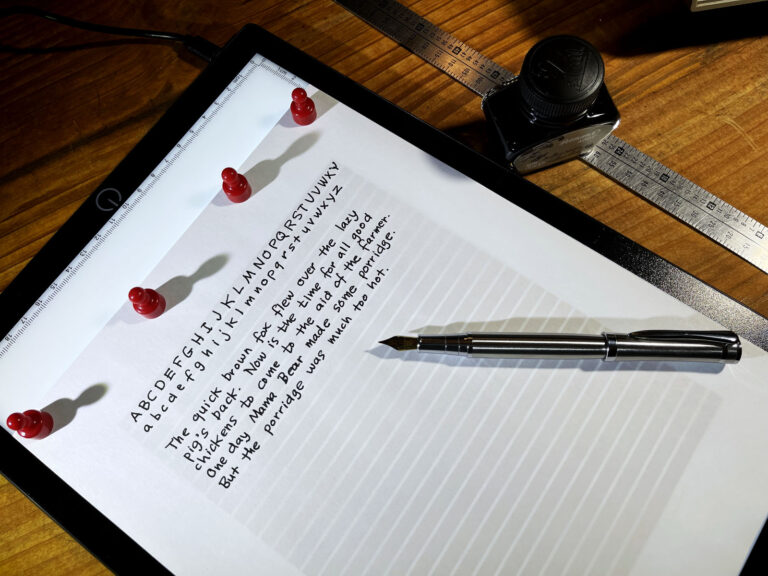 ABCDEFGHIJKLMNOPQRSTUVVWXY
abcdefghijklmnopqrstuvwxyz
The quick brown fox flew over the lazy
pig's back. Now is the time for all good
chickens to come to the aid of the farmer.
One day Mama Bear made some porridge.
But the porridge was much too hot.